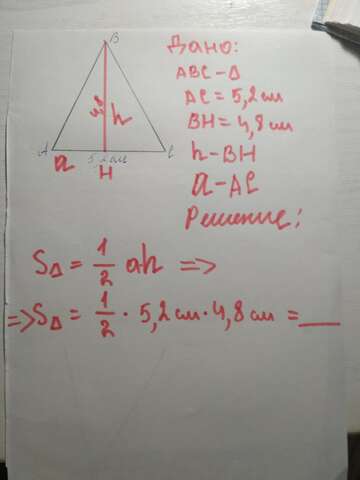 B
4,8
h
A
a
5,2 см
C
H
Дано:
ABC - Δ
AC = 5,2 см
BH = 4,8 см
h - BH
a - AC
Решение:
SΔ = 1/2 ah =>
=> SΔ = 1/2 · 5,2 см · 4,8 см = ___